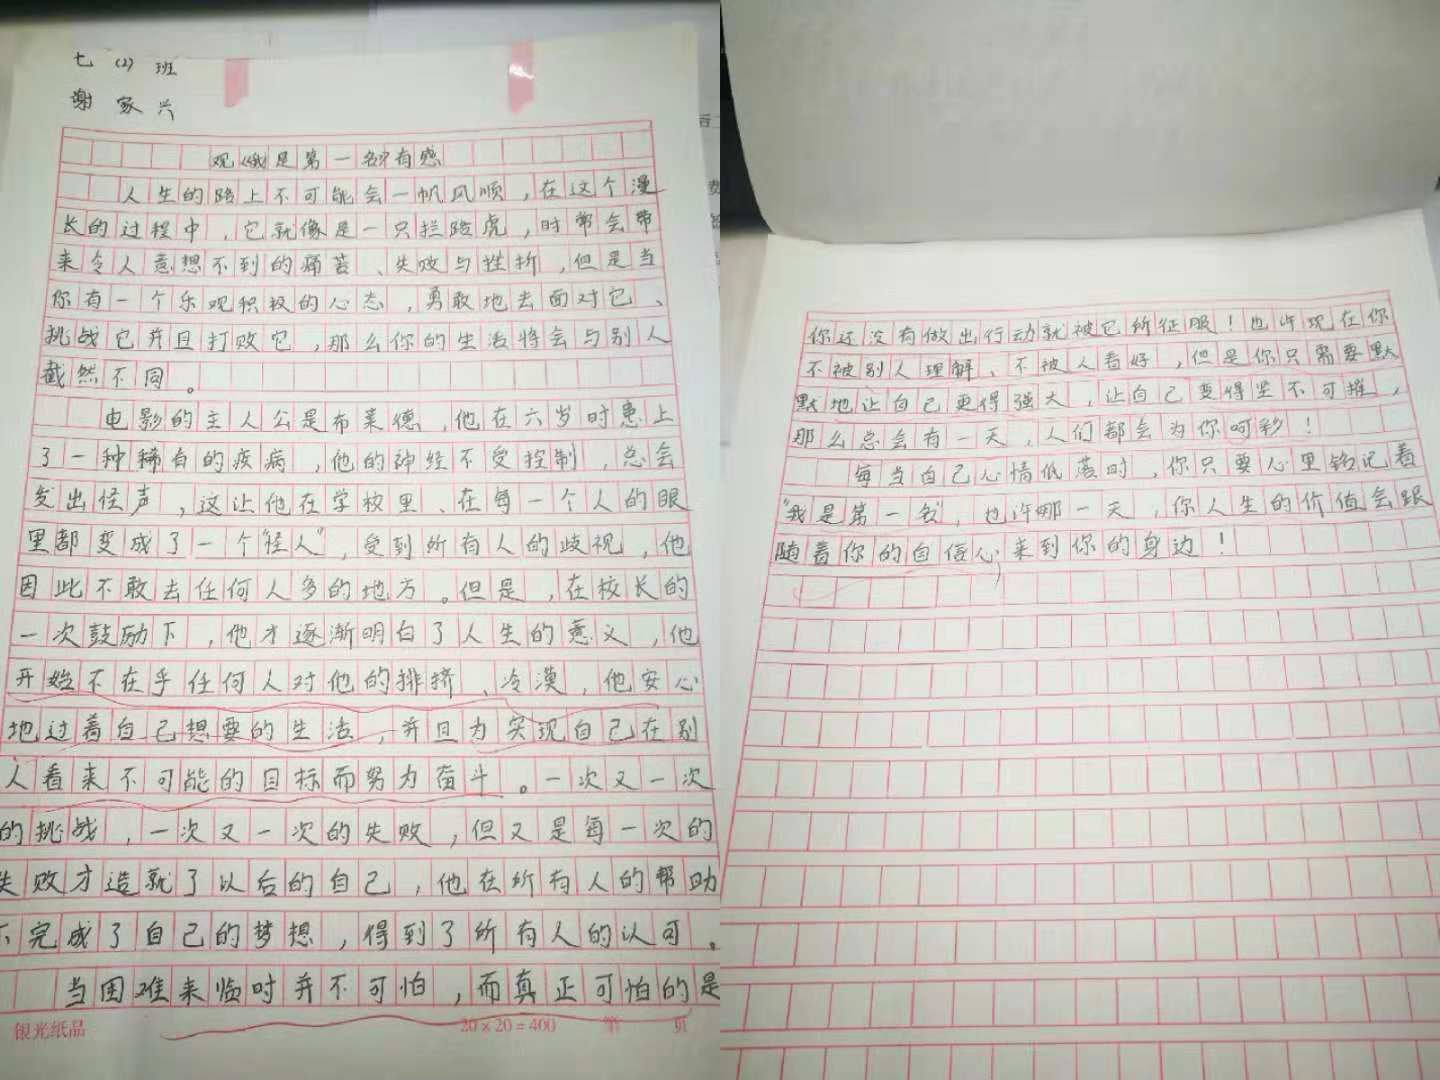 七（2）班
谢家兴
观《我是第一名》有感
人生的路上不可能会一帆风顺，在这个漫
长的过程中，它就像是一只拦路虎，时常会带
来令人意想不到的痛苦、失败与挫折，但是当
你有一个乐观积极的心态，勇敢地去面对它、
挑战它并且打败它，那么你的生活将会与别人
截然不同。
电影的主人公是布莱德，他在六岁时患上
了一种稀有的疾病，他的神经不受控制，总会
发出怪声，这让他在学校里、在每一个人的眼
里都变成了一个"怪人"，受到所有人的歧视，他
因此不敢去任何人多的地方。但是，在校长的
一次鼓励下，他才逐渐明白了人生的意义，他
开始不在乎任何人对他的排挤、冷漠，他安心
地过着自己想要的生活，并且为实现自己在别
人看来不可能的目标而努力奋斗。一次又一次
的挑战，一次又一次的失败，但又是每一次的
失败才造就了以后的自己，他在所有人的帮助
下完成了自己的梦想，得到了所有人的认可。
当困难来临时并不可怕，而真正可怕的是
银光纸品
20×20=400
第 页
你还没有做出行动就被它所征服！也许现在你
不被别人理解、不被人看好，但是你只需要默
默地让自己更得强大，让自己变得坚不可摧，
那么总会有一天，人们都会为你呵彩！
每当自己心情低落时，你只要心里铭记着
"我是第一名"，也许哪一天，你人生的价值会跟
随着你的自信心来到你的身边！